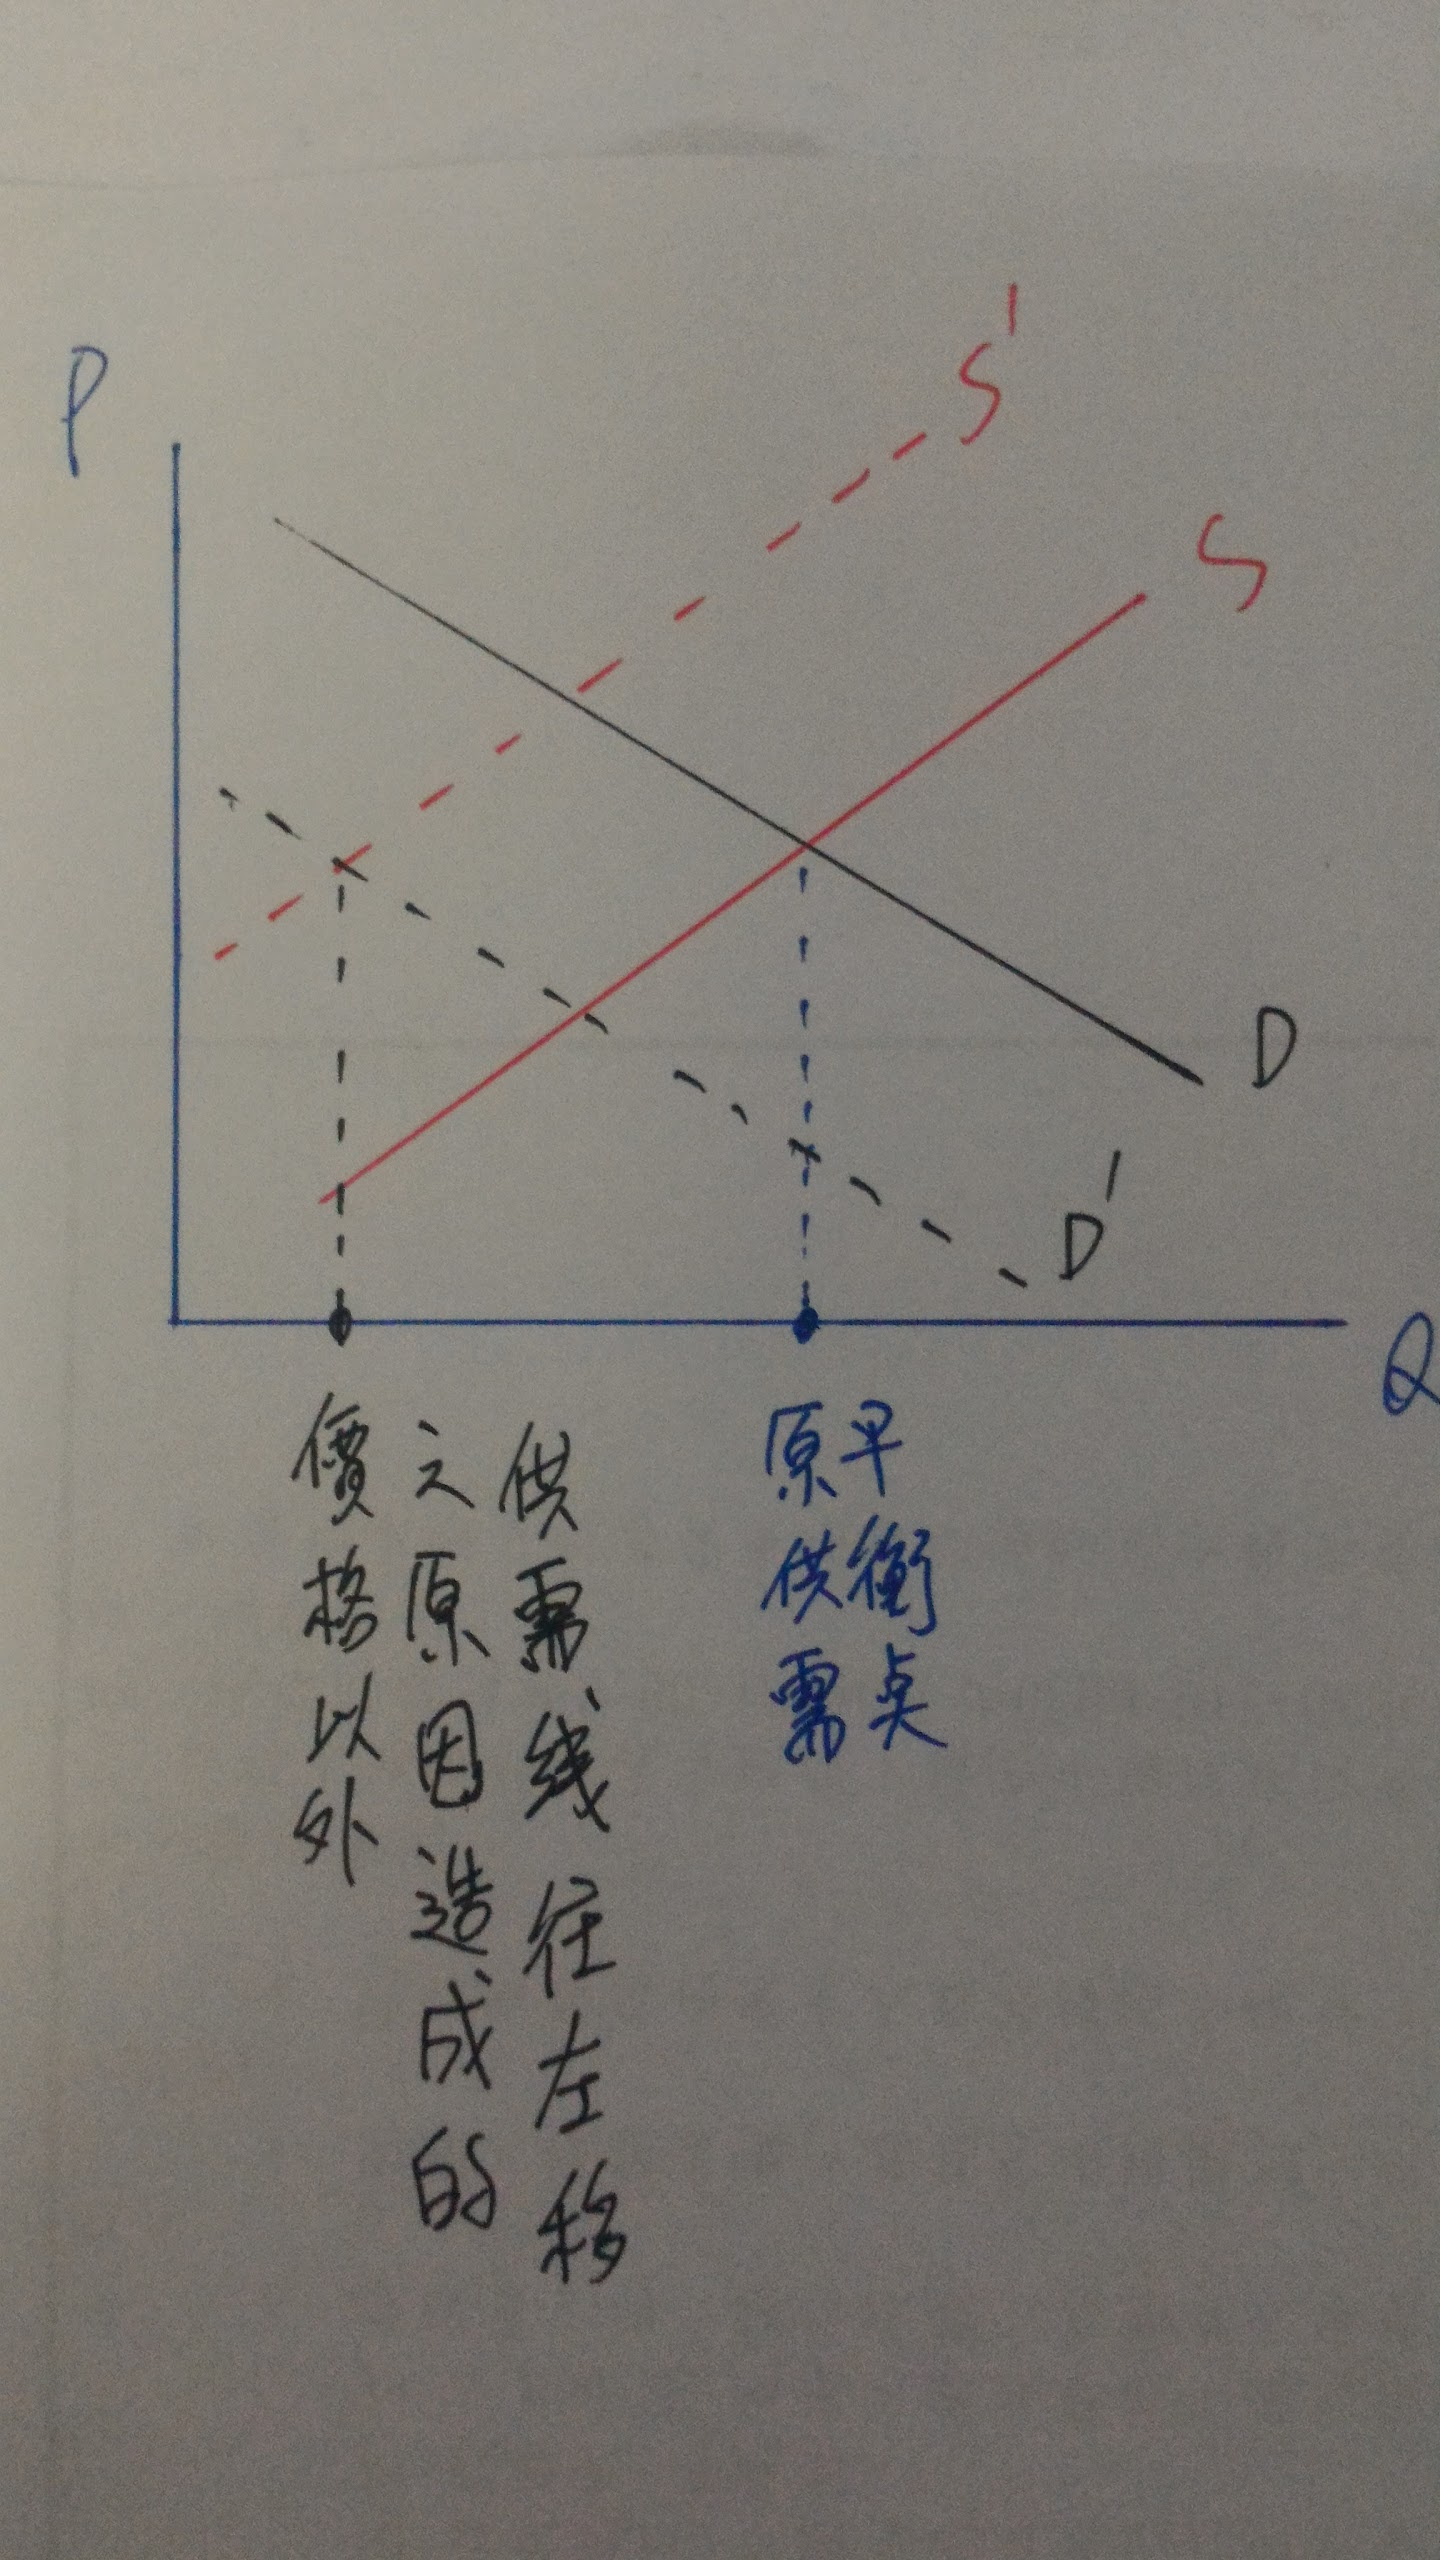 P
S'
S
D
D'
Q
價格以外
之原因造成的
供需线往左移
原供需
早衡奌